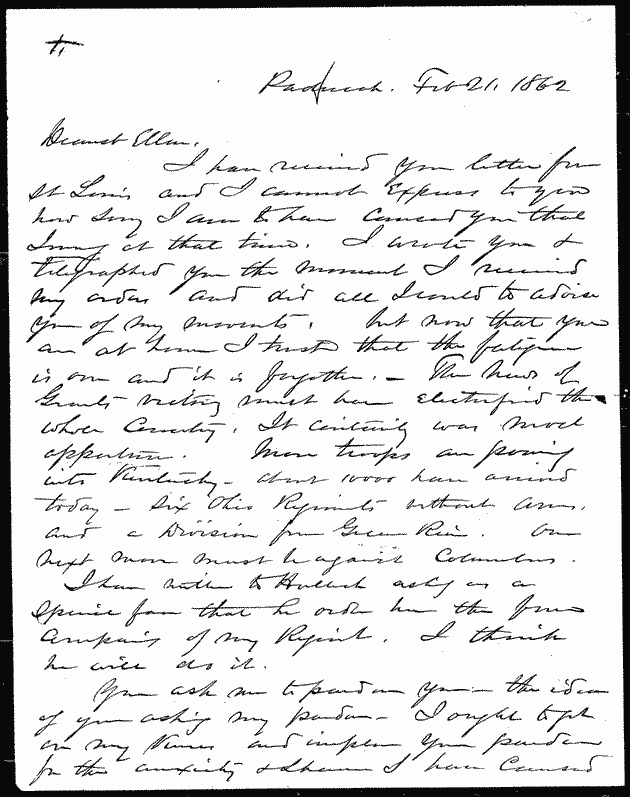 Paducah. Feb 21, 1862
Dearest Ellen,
I have received your letter from
St Louis and I cannot Express to you
how sorry I am to have caused you that
Journey at that time. I wrote you &
telegraphed you the moment I received
my orders and did all I could to advise
you of my movements, but now that you
are at home I trust that the fatigue
is over and it is forgotten. - The News of
Grants victory must have electrified the
whole Country. It certainly was most
opportune. More troops are pouring
into Kentucky - about 10000 have arrived
today - six Ohio Regiments without arms,
and a Division from Green River. Our
next move must be against Columbus.
I have written to Halleck asking as a
special favor that he order here the four
Companies of my Regiment. I think
he will do it.
You ask me to pardon you - the idea
of your asking my pardon - I ought to get
on my Knees and implore your pardon
for the anxiety & shame I have caused